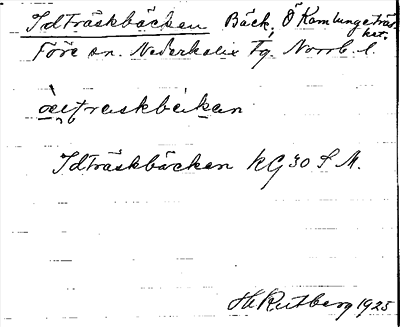 Idträskbäcken Bäck, Ö Kamlungeträs-
ket.
Töre sn. Nederkalix Tg. Norrb. l.
Idträskbäcken KG 30 S M.
H Rutberg 1925